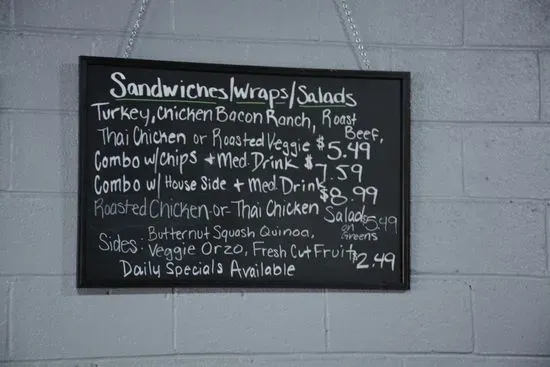 Sandwiches/Wraps/Salads
Turkey, Chicken Bacon Ranch, Roast Beef,
Thai Chicken or Roasted Veggie $5.49
Combo w/chips + Med. Drink $7.59
Combo w/ House Side + Med. Drink $8.99
Roasted Chicken or Thai Chicken Salad on Greens $5.49
Sides: Butternut Squash Quinoa,
Veggie Orzo, Fresh Cut Fruit $2.49
Daily Specials Available